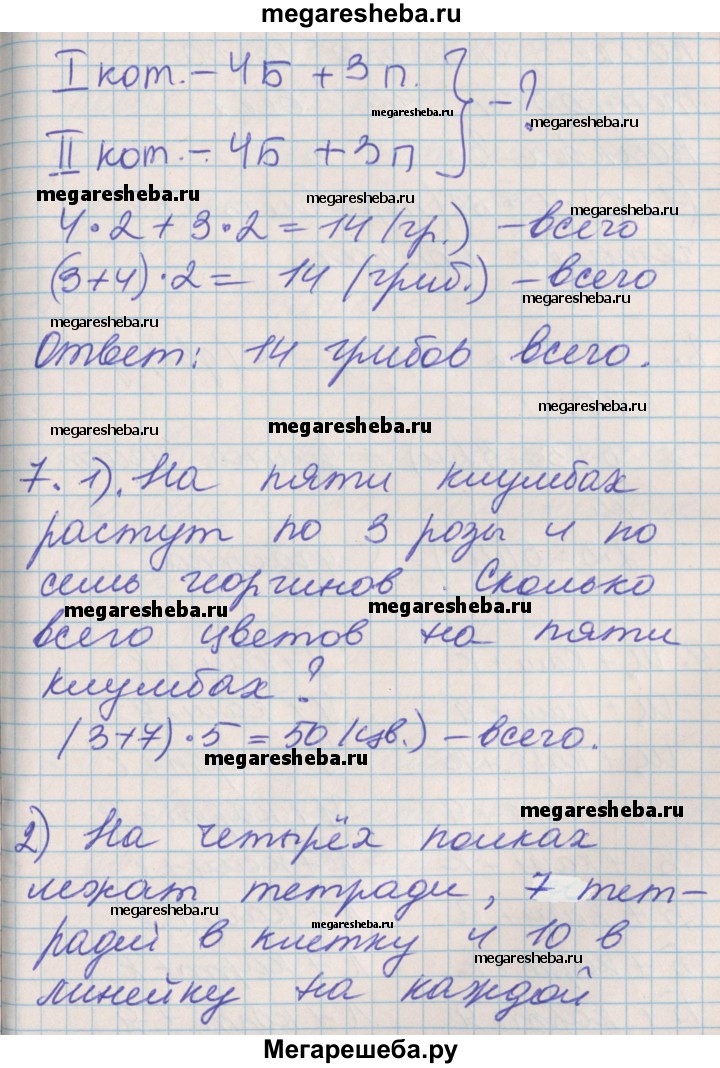 megaresheba.ru
I кот. – 4Б + 3п. } – ?
megaresheba.ru
megaresheba.ru
II кот. – 4Б + 3п
megaresheba.ru
megaresheba.ru
megaresheba.ru
4·2+3·2=14 (гр.) – всего
(3+4)·2= 14 (гриб.) – всего
megaresheba.ru
megaresheba.ru
Ответ: 14 грибов всего.
megaresheba.ru
megaresheba.ru
megaresheba.ru
7. 1). На пяти клумбах
растут по 3 розы и по
семь георгинов. Сколько
megaresheba.ru
megaresheba.ru
всего цветов на пяти
клумбах?
(3+7)·5=50 (цв.) – всего.
megaresheba.ru
megaresheba.ru
2) На четырёх полках
лежат тетради, 7 тет-
megaresheba.ru
megaresheba.ru
радей в клетку и 10 в
megaresheba.ru
линейку на каждой
megaresheba.ru
Мегарешеба.ру